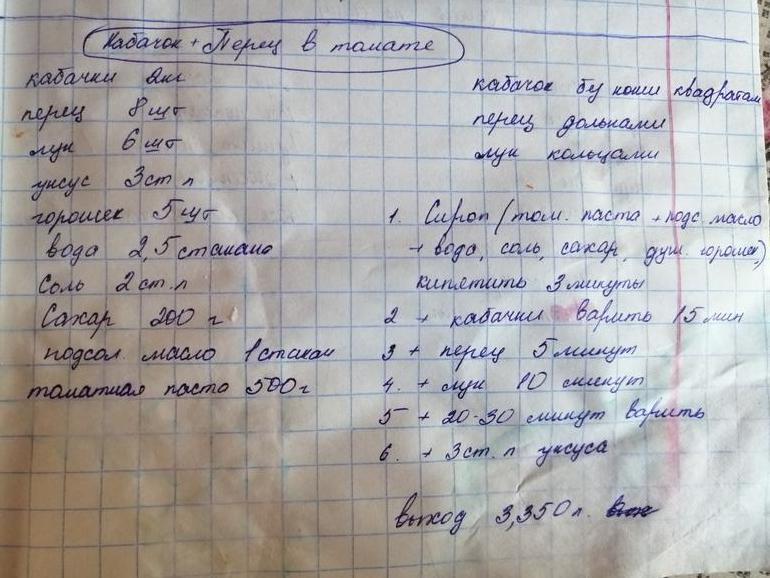 Кабачок + Перец в томате
кабачки 2кг
перец 8 шт
лук 6 шт
уксус 3 ст л
горошек 5 шт
вода 2,5 стакана
Соль 2 ст. л
Сахар 200 г
подсол. масло 1 стакан
томатная паста 500 г
кабачок без кожи квадратам
перец дольками
лук кольцами
1. Сироп (том. паста + подс. масло
+ вода, соль, сахар, душ. горошек)
кипятить 3 минуты
2 + кабачки варить 15 мин
3 + перец 5 минут
4. + лук 10 минут
5 + 20-30 минут варить
6. + 3 ст. л уксуса
выход 3,350 л.